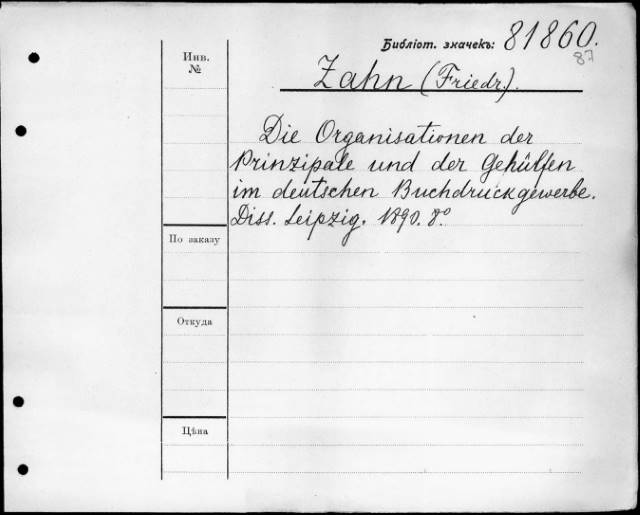 Библіот. значекъ: 81860.
87
Инв.
№
Zahn (Friedr.).
Die Organisationen der
Prinzipale und der Gehülfen
im deutschen Buchdruckgewerbe.
Diss. Leipzig. 1890. 8.°
По заказу
Откуда
Цѣна